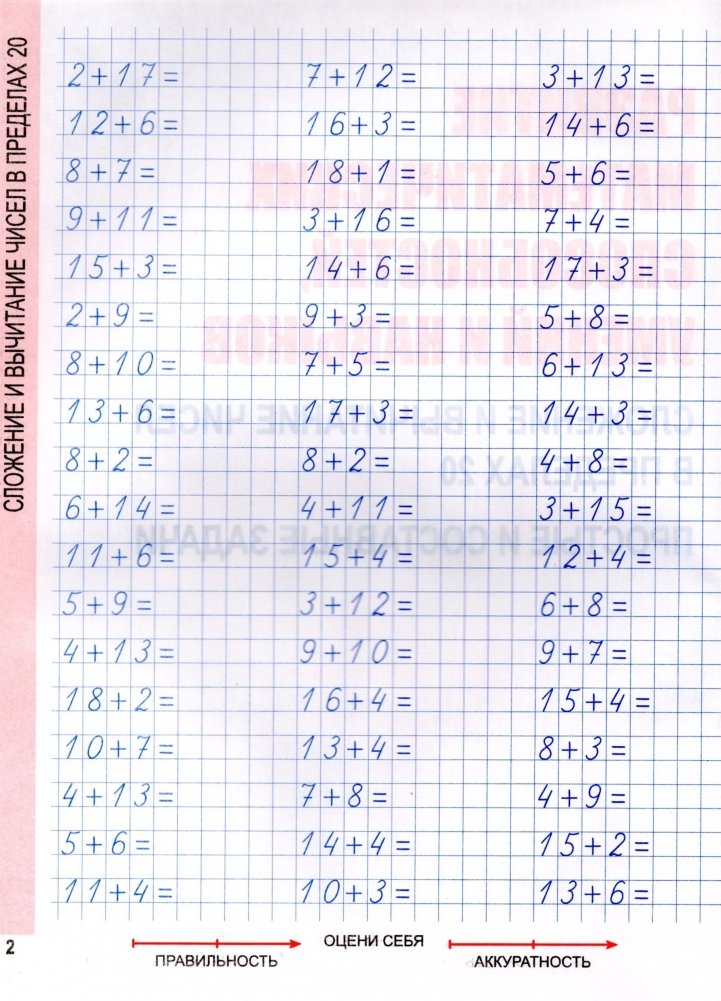 СЛОЖЕНИЕ И ВЫЧИТАНИЕ ЧИСЕЛ В ПРЕДЕЛАХ 20
2+17= 7+12= 3+13=
12+6= 16+3= 14+6=
8+7= 18+1= 5+6=
9+11= 3+16= 7+4=
15+3= 14+6= 17+3=
2+9= 9+3= 5+8=
8+10= 7+5= 6+13=
13+6= 17+3= 14+3=
8+2= 8+2= 4+8=
6+14= 4+11= 3+15=
11+6= 15+4= 12+4=
5+9= 3+12= 6+8=
4+13= 9+10= 9+7=
18+2= 16+4= 15+4=
10+7= 13+4= 8+3=
4+13= 7+8= 4+9=
5+6= 14+4= 15+2=
11+4= 10+3= 13+6=
2
ОЦЕНИ СЕБЯ
ПРАВИЛЬНОСТЬ АККУРАТНОСТЬ